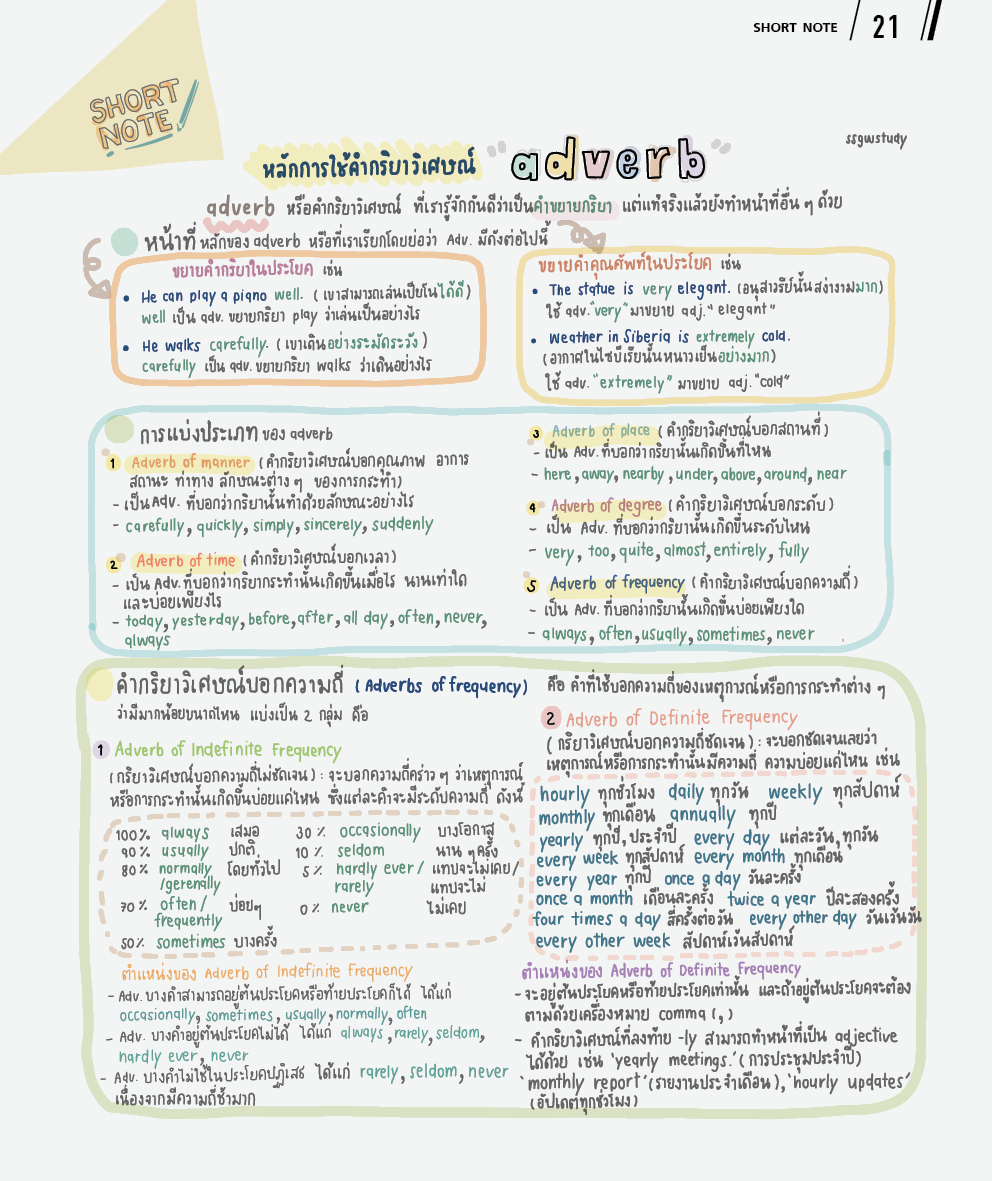 SHORT NOTE / 21 //
SHORT
NOTE
ssgwstudy
หลักการใช้คำกริยาวิเศษณ์ "adverb"
adverb หรือคำกริยาวิเศษณ์ ที่เรารู้จักกันดีว่าเป็นคำขยายกริยา แต่แท้จริงแล้วยังทำหน้าที่อื่น ๆ ด้วย
หน้าที่ หลักของ adverb หรือที่เราเรียกโดยย่อว่า Adv. มีดังต่อไปนี้
ขยายคำกริยาในประโยค เช่น
• He can play a piano well. (เขาสามารถเล่นเปียโนได้ดี)
well เป็น adv. ขยายกริยา play ว่าเล่นเป็นอย่างไร
• He walks carefully. (เขาเดินอย่างระมัดระวัง)
carefully เป็น adv. ขยายกริยา walks ว่าเดินอย่างไร
ขยายคำคุณศัพท์ในประโยค เช่น
• The statue is very elegant. (อนุสาวรีย์นั้นสง่างามมาก)
ใช้ adv."very" มาขยาย adj."elegant"
• Weather in Siberia is extremely cold.
(อากาศในไซบีเรียนั้นหนาวเป็นอย่างมาก)
ใช้ adv. "extremely" มาขยาย adj. "cold"
การแบ่งประเภท ของ adverb
1 Adverb of manner (คำกริยาวิเศษณ์บอกคุณภาพ อาการ
สถานะ ท่าทาง ลักษณะต่าง ๆ ของการกระทำ)
- เป็น Adv. ที่บอกว่ากริยานั้นทำด้วยลักษณะอย่างไร
- carefully, quickly, simply, sincerely, suddenly
2 Adverb of time (คำกริยาวิเศษณ์บอกเวลา)
- เป็น Adv. ที่บอกว่ากริยากระทำนั้นเกิดขึ้นเมื่อไร นานเท่าใด
และบ่อยเพียงไร
- today, yesterday, before, after, all day, often, never,
always
3 Adverb of place (คำกริยาวิเศษณ์บอกสถานที่)
- เป็น Adv. ที่บอกว่ากริยานั้นเกิดขึ้นที่ไหน
- here, away, nearby, under, above, around, near
4 Adverb of degree (คำกริยาวิเศษณ์บอกระดับ)
- เป็น Adv. ที่บอกว่ากริยานั้นเกิดขึ้นระดับไหน
- very, too, quite, almost, entirely, fully
5 Adverb of frequency (คำกริยาวิเศษณ์บอกความถี่)
- เป็น Adv. ที่บอกว่ากริยานั้นเกิดขึ้นบ่อยเพียงใด
- always, often, usually, sometimes, never
คำกริยาวิเศษณ์บอกความถี่ (Adverbs of frequency) คือ คำที่ใช้บอกความถี่ของเหตุการณ์หรือการกระทำต่าง ๆ
ว่ามีมากน้อยขนาดไหน แบ่งเป็น 2 กลุ่ม คือ
1 Adverb of Indefinite Frequency
(กริยาวิเศษณ์บอกความถี่ไม่ชัดเจน) : จะบอกความถี่คร่าว ๆ ว่าเหตุการณ์
หรือการกระทำนั้นเกิดขึ้นบ่อยแค่ไหน ซึ่งแต่ละคำจะมีระดับความถี่ ดังนี้
100% always เสมอ
90% usually ปกติ
80% normally โดยทั่วไป
/gerenally
70% often / บ่อยๆ
frequently
50% sometimes บางครั้ง
30% occasionally บางโอกาส
10% seldom นาน ๆครั้ง
5% hardly ever / แทบจะไม่เคย/
rarely แทบจะไม่
0% never ไม่เคย
ตำแหน่งของ Adverb of Indefinite Frequency
- Adv. บางคำสามารถอยู่ต้นประโยคหรือท้ายประโยคก็ได้ ได้แก่
occasionally, sometimes, usually, normally, often
- Adv. บางคำอยู่ต้นประโยคไม่ได้ ได้แก่ always, rarely, seldom,
hardly ever, never
- Adv. บางคำไม่ใช้ในประโยคปฏิเสธ ได้แก่ rarely, seldom, never
เนื่องจากมีความถี่ซ้ำมาก
2 Adverb of Definite Frequency
(กริยาวิเศษณ์บอกความถี่ชัดเจน) : จะบอกชัดเจนเลยว่า
เหตุการณ์หรือการกระทำนั้นมีความถี่ ความบ่อยแค่ไหน เช่น
hourly ทุกชั่วโมง daily ทุกวัน weekly ทุกสัปดาห์
monthly ทุกเดือน annually ทุกปี
yearly ทุกปี, ประจำปี every day แต่ละวัน, ทุกวัน
every week ทุกสัปดาห์ every month ทุกเดือน
every year ทุกปี once a day วันละครั้ง
once a month เดือนละครั้ง twice a year ปีละสองครั้ง
four times a day สี่ครั้งต่อวัน every other day วันเว้นวัน
every other week สัปดาห์เว้นสัปดาห์
ตำแหน่งของ Adverb of Definite Frequency
- จะอยู่ต้นประโยคหรือท้ายประโยคเท่านั้น และถ้าอยู่ต้นประโยคจะต้อง
ตามด้วยเครื่องหมาย comma (,)
- คำกริยาวิเศษณ์ที่ลงท้าย -ly สามารถทำหน้าที่เป็น adjective
ได้ด้วย เช่น 'yearly meetings.' (การประชุมประจำปี)
'monthly report' (รายงานประจำเดือน), 'hourly updates'
(อัปเดตทุกชั่วโมง)